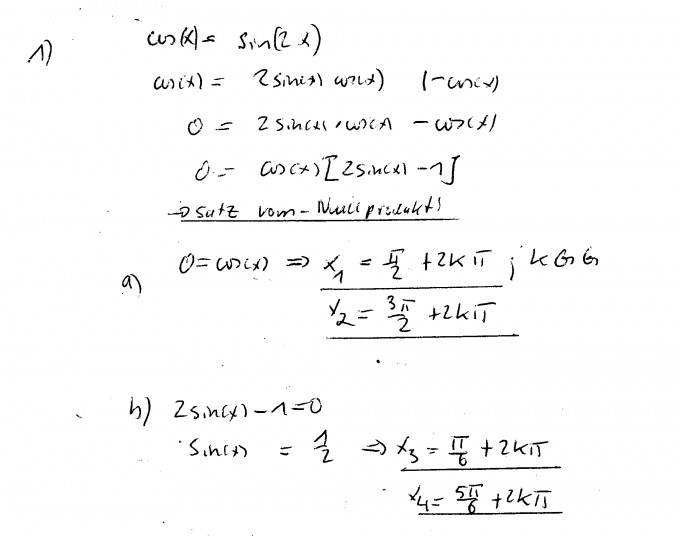 1) cos(x) = sin(2x)
cos(x) = 2 sin(x) cos(x) |-cos(x)
0 = 2 sin(x) · cos(x) - cos(x)
0 = cos(x) [2 sin(x) - 1]
→ Satz vom - Nullprodukt!
a) 0 = cos(x) ⇒ x₁ = π/2 + 2kπ ; k ∈ G
x₂ = 3π/2 + 2kπ
b) 2 sin(x) - 1 = 0
sin(x) = 1/2 ⇒ x₃ = π/6 + 2kπ
x₄ = 5π/6 + 2kπ